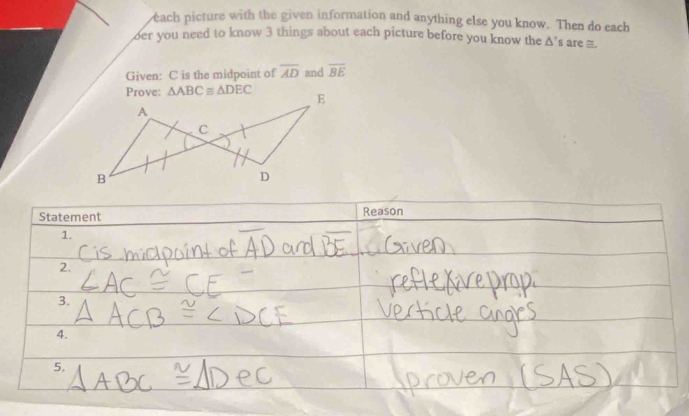 each picture with the given information and anything else you know. Then do each
ber you need to know 3 things about each picture before you know the Δ's are ≅.
Given: C is the midpoint of A̅D̅ and B̅E̅
Prove: ΔABC ≅ ΔDEC
E
A
C
B
D
Statement Reason
1. C is midpoint of A̅D̅ and B̅E̅ Given
2. ∠AC ≅ CE reflexive prop.
3. Δ ACB ≅ ∠DCE verticle anges
4.
5. ΔABC ≅ ΔDeC proven (SAS)